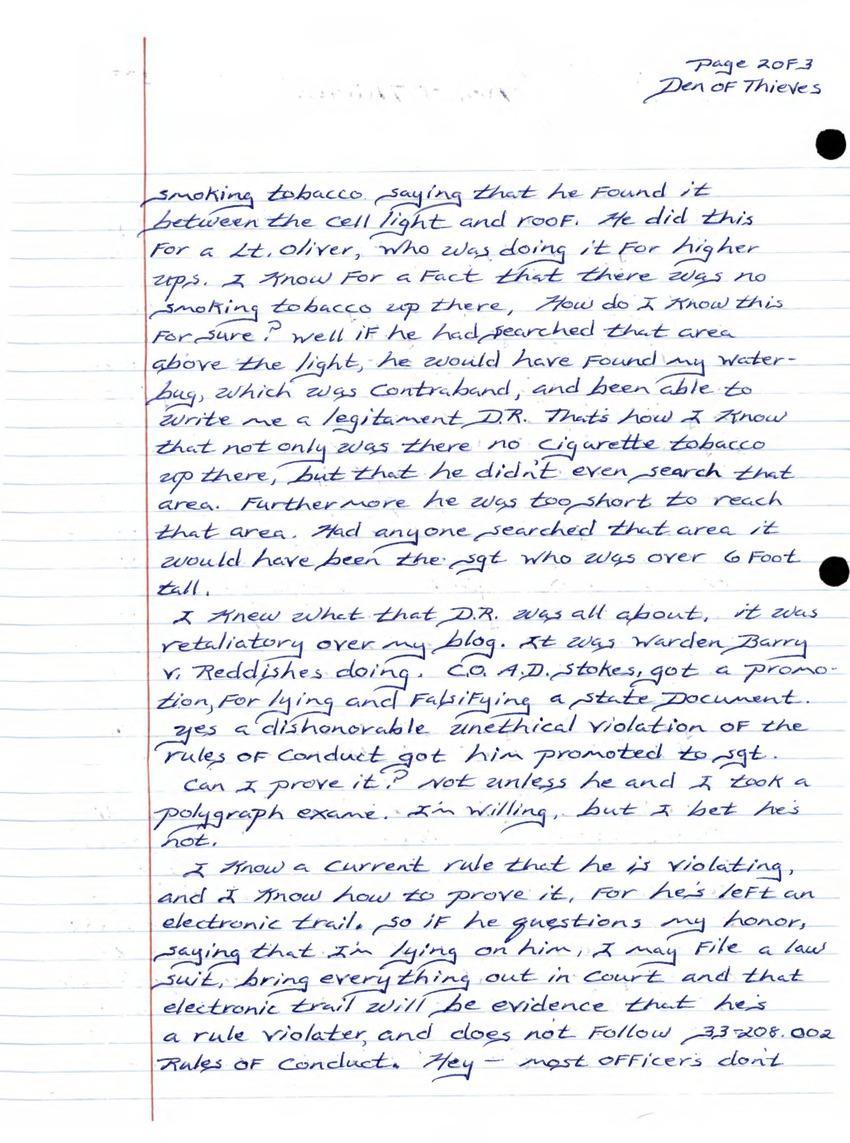 Page 2 OF 3
Den OF Thieves
smoking tobacco saying that he Found it
between the cell light and roof. He did this
For a Lt. Oliver, who was doing it For higher
ups. I Know For a Fact that there was no
smoking tobacco up there, How do I Know this
For sure? well iF he had searched that area
above the light, he would have Found my water-
bug, which was Contraband, and been able to
write me a legitament D.R. That's how I Know
that not only was there no cigurette tobacco
up there, but that he didn't even search that
area. Furthermore he was too short to reach
that area. Had anyone searched that area it
would have been the sgt who was over 6 Foot
tall.
I Knew what that D.R. was all about, it was
retaliatory over my blog. It was Warden Barry
V. Reddishes doing. C.O. A.D. Stokes, got a promo-
tion, For lying and Falsifying a state Document.
yes a dishonorable unethical violation OF the
rules OF Conduct got him promoted to sgt.
Can I prove it? Not unless he and I took a
polygraph exame. I'm willing, but I bet he's
not.
I Know a Current rule that he is violating,
and I Know how to prove it, For he's leFt an
electronic trail. So iF he questions my honor,
saying that I'm lying on him, I may File a law
suit, bring everything out in Court and that
electronic trail will be evidence that he's
a rule violater, and does not Follow 33-208.002
Rules OF Conduct. Hey - most OFFicers don't